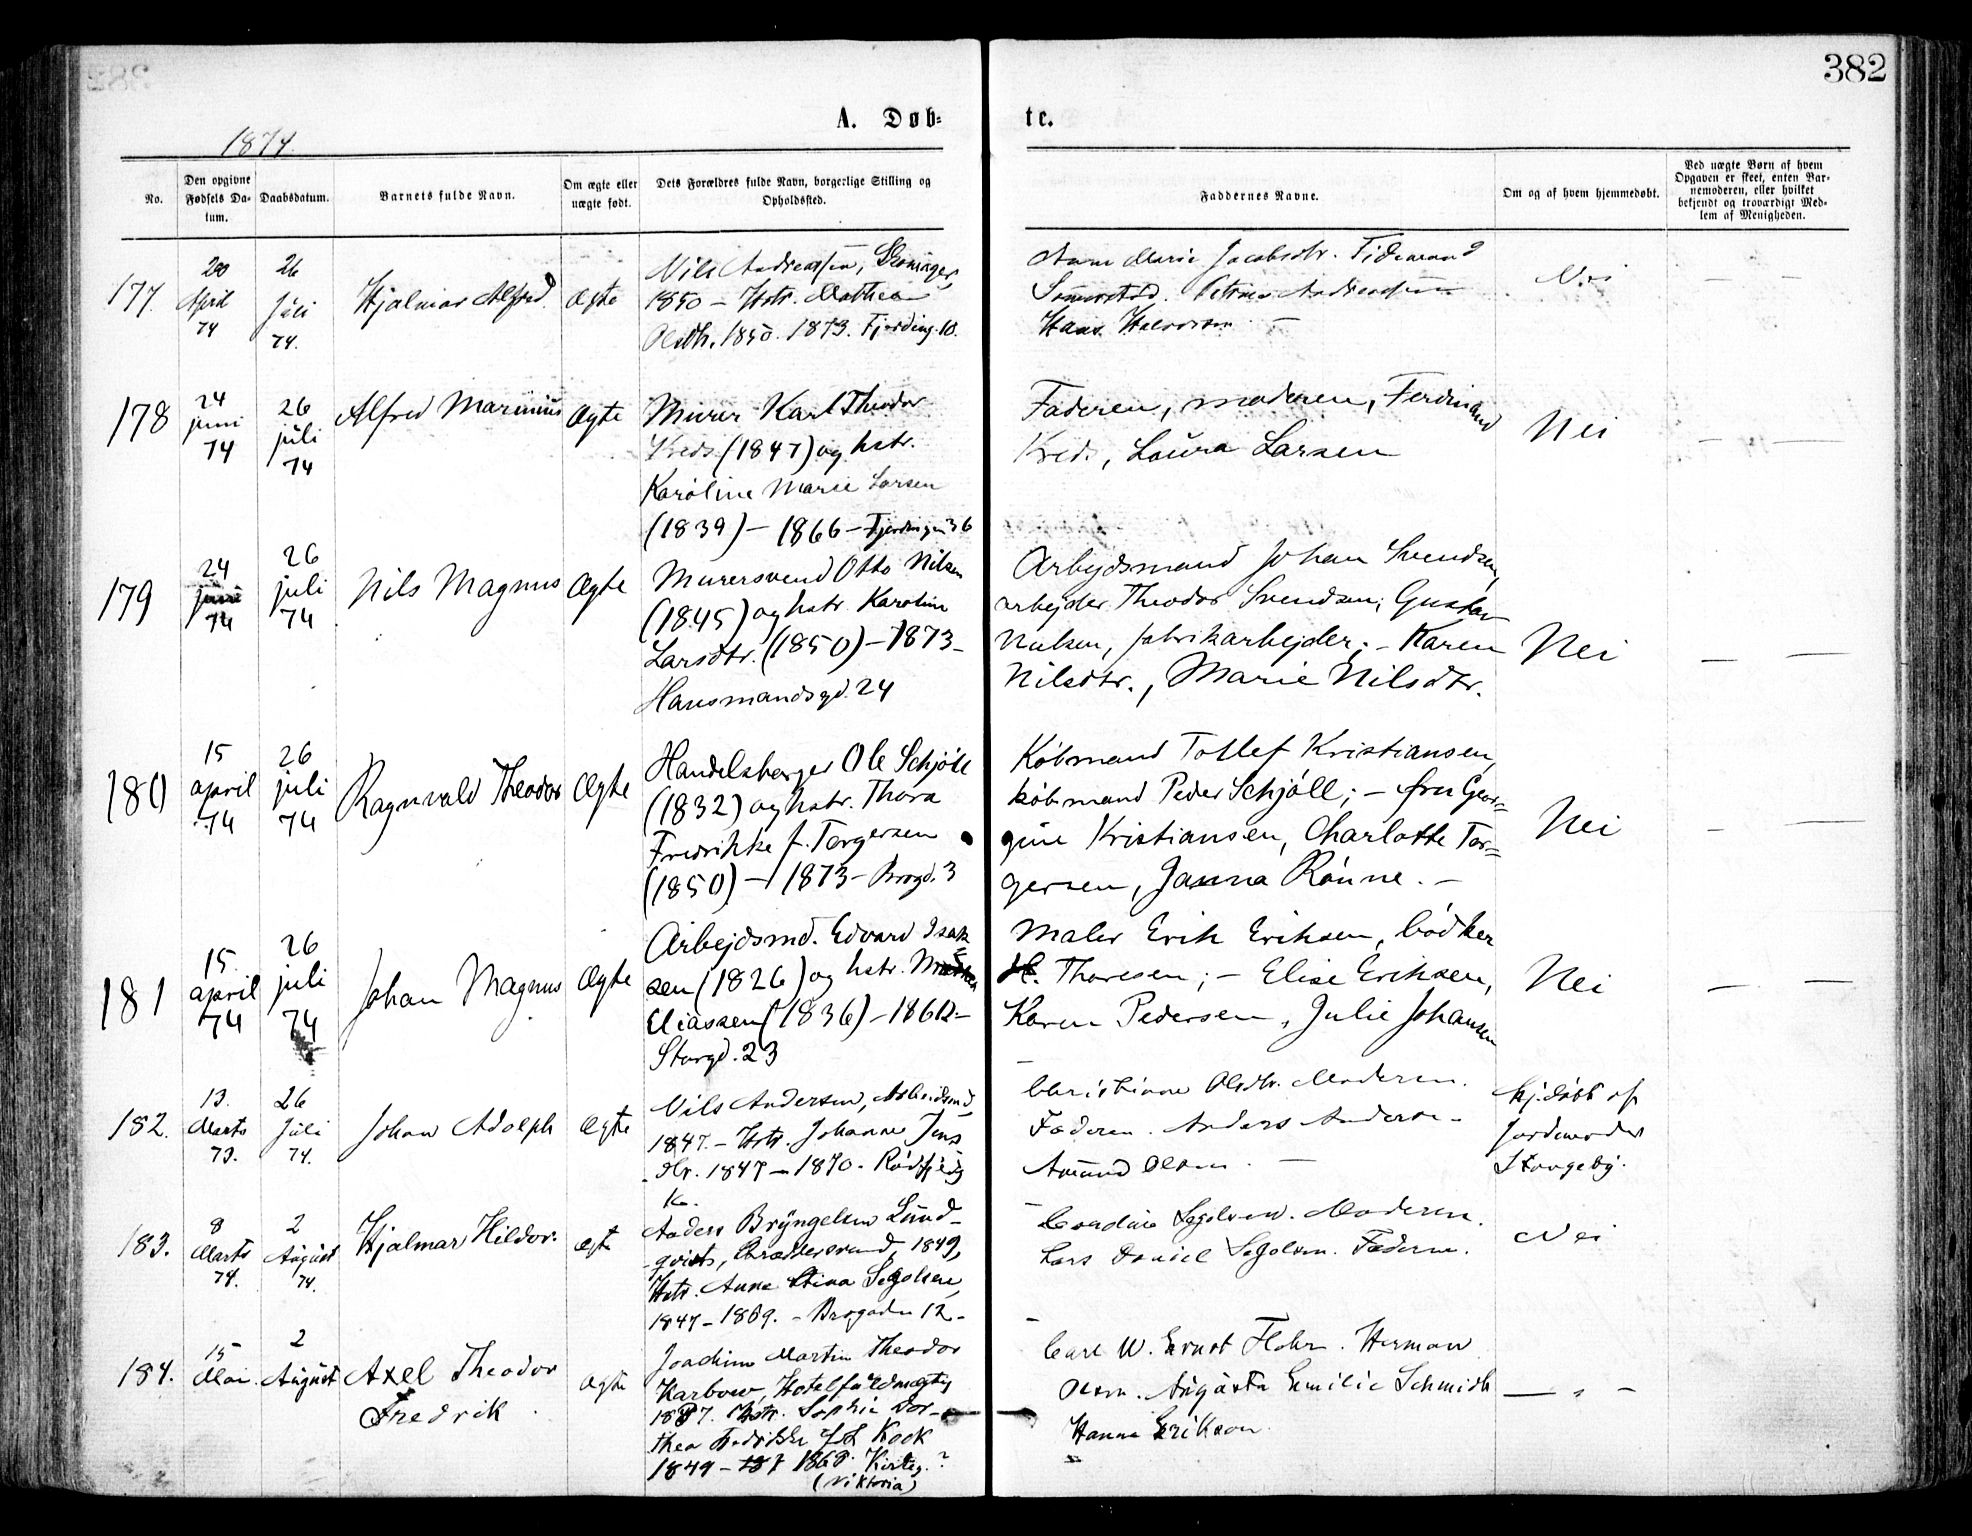 382
A. Døb-
te.
1874.
No.
Den opgivne Fødsels Da-
tum.
Daabsdatum.
Barnets fulde Navn.
Om ægte eller
uægte født.
Dets Forældres fulde Navn, borgerlige Stilling og
Opholdssted.
Faddernes Navne.
Om og af hvem hjemmedøbt.
Ved uægte Børn af hvem
Opgaven er skeet, enten Bar-
nemoderen, eller hvilket
bekjendt og troværdigt Med-
lem af Menigheden.
177.
20
April
74
26
Juli
74.
Hjalmar Alfred.
Ægte
Nils Andreassen,
1850 – Hstr. Mathea
Olsdtr. 1850. 1873. Fjerding. 10.
Anne Marie Jacobsdtr. Tidemand
Andreassen
Hans Halvorsen –
Nei
– –
178
24
juni
74
26
juli
74
Alfred Marinius
Ægte
Murer Karl Theodor
Kreds (1847) og hstr.
Karoline Marie Larsen
(1839) – 1866 – Fjerdingen 36
Faderen, moderen, Ferdinand
Kreds, Laura Larsen
Nei
– –
179
24
juni
74
26
juli
74
Nils Magnus
Ægte
Murersvend Otto Nilsen
(1845) og hstr. Karoline
Larsdtr. (1850) – 1873 –
Hausmandsgd. 24
Arbejdsmand Johan Svendsen,
arbejder Theodor Svendsen; Gustav
Nilsen, fabrikarbejder; – Karen
Nilsdtr., Marie Nilsdtr.
Nei
– –
180
15
april
74
26
juli
74
Ragnvald Theodor
Ægte
Handelsborger Ole Schjöll
(1832) og hstr. Thora
Fredrikke f. Torgersen
(1850) – 1873 – Brogd. 3
Købmand Tollef Kristiansen,
købmand Peder Schjöll; – fru Geor-
gine Kristiansen, Charlotte Tor-
gersen, Janna Rönne. –
Nei
– –
181
15
april
74
26
juli
74
Johan Magnus
Ægte
Arbejdsmd. Edvard Isak-
sen (1826) og hstr.
Eliassen (1836) –
Storgd. 23
Maler Erik Eriksen, bödker
H. Thoresen; – Elise Eriksen,
Karen Pedersen, Julie Johansen
Nei
– –
182.
13.
Marts
73.
26
Juli
74.
Johan Adolph
Ægte
Nils Andersen, Arbeidsmd,
1847. – Hstr. Johanne Jens-
dtr. 1847 – 1870.
Christiane Olsdtr. Moderen.
Faderen. Anders Anderse-
Amund Olsen. –
Hj. døbt af
Jordemoder
183.
8
Marts
74.
2
August
74.
Hjalmar Hildor.
Ægte
Anders Bryngelsen Lund-
qvist, 1849,
Hstr. Anne Stina Segolsen,
1847 – 1869. – Brogaden 12 –
Segolsen. Moderen.
Lars Daniel Segolsen. Faderen.
Nei
184.
15
Mai
2
August
Axel Theodor
Fredrik
Ægte
Joachim Martin Theodor
Karbow, Hotelfuldmægtig
Hstr. Sophie Dor-
thea Fredrikke Kock
1849 – 1868. Kirkeg. ?
(Viktoria)
Carl W. Ernst Flohr. Herman
Olsen. Augusta Emilie Schmidt
Hanna Erikson
– „ –